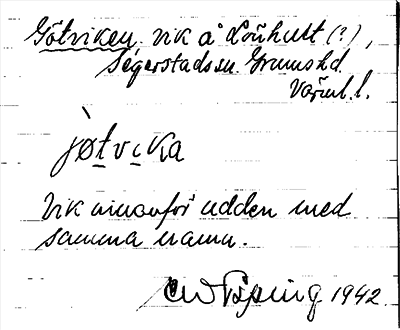 Götviken, vik å Lönhult (?),
Segerstads sn. Grums hd.
Värml. l.
jøtvika
Vik innanför udden med
samma namn.
CW Töping 1942